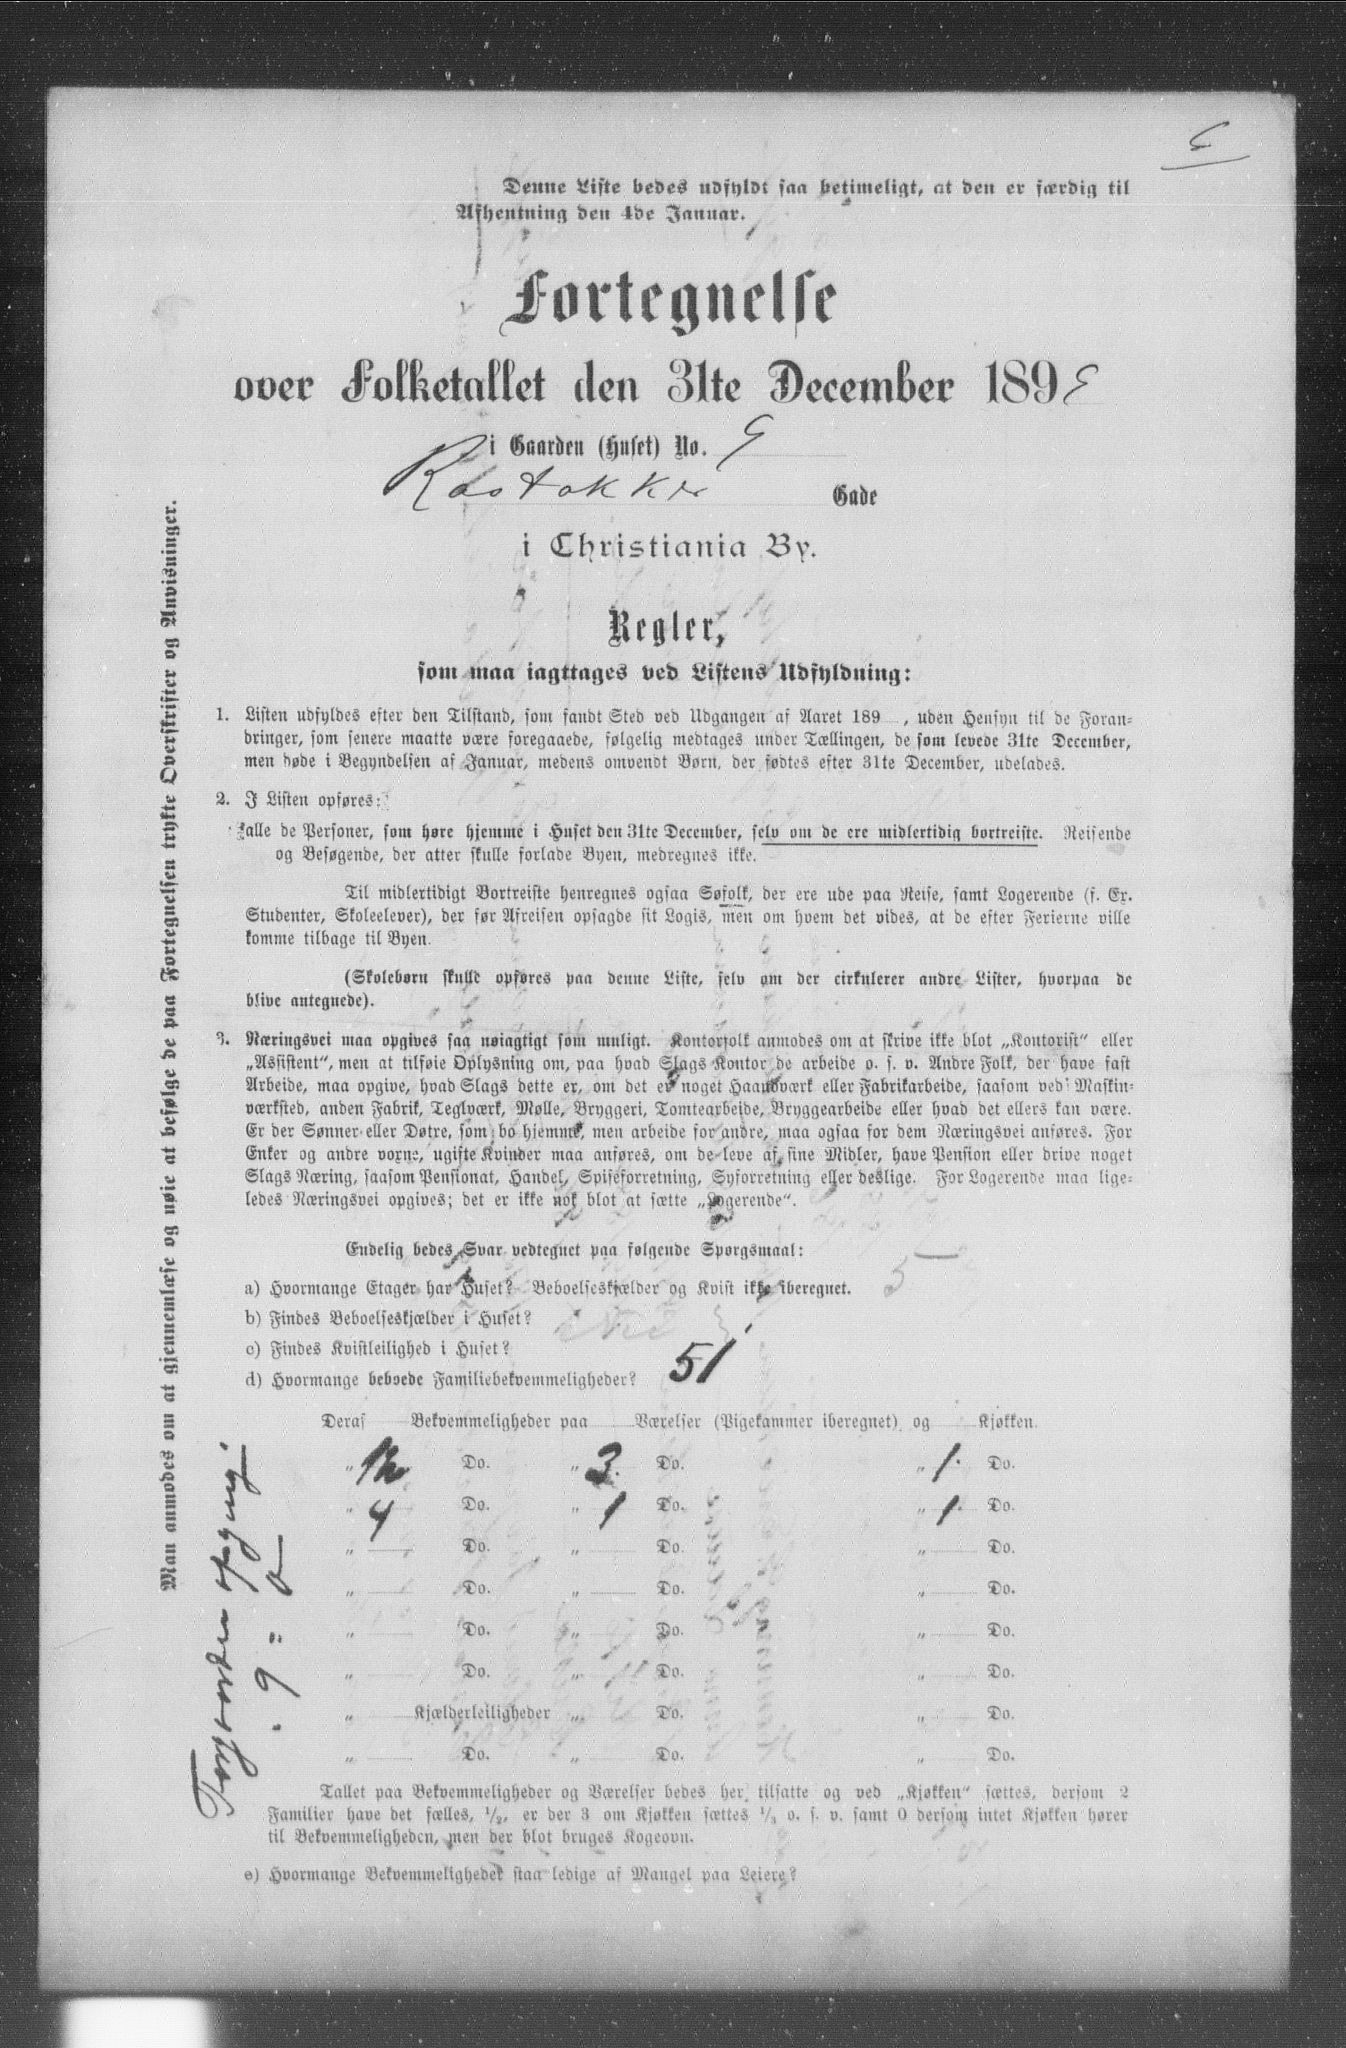 Denne Liste bedes udfyldt saa betimeligt, at den er færdig til
Afhentning den 4de Januar.
Fortegnelse
over Folketallet den 31te December 189
i Gaarden (Huset) No. 9
Rostokker Gade
i Christiania By.
Regler,
som maa iagttages ved Listens Udfyldning:
1. Listen udfyldes efter den Tilstand, som fandt Sted ved Udgangen af Aaret 189 , uden Hensyn til de Foran-
dringer, som senere maatte være foregaaede, følgelig medtages under Tællingen, de som levede 31te December,
men døde i Begyndelsen af Januar, medens omvendt Børn, der fødtes efter 31te December, udelades.
2. I Listen opføres:
alle de Personer, som høre hjemme i Huset den 31te December, selv om de ere midlertidig bortreiste. Reisende
og Besøgende, der atter skulle forlade Byen, medregnes ikke.
Til midlertidigt Bortreiste henregnes ogsaa Søfolk, der ere ude paa Reise, samt Logerende (f. Ex.
Studenter, Skoleelever), der før Afreisen opsagde sit Logis, men om hvem det vides, at de efter Ferierne ville
komme tilbage til Byen.
(Skolebørn skulle opføres paa denne Liste, selv om der cirkulerer andre Lister, hvorpaa de
blive antegnede).
3. Næringsvei maa opgives saa nøiagtigt som muligt. Kontorfolk anmodes om at skrive ikke blot „Kontorist“ eller
„Assistent“, men at tilføie Oplysning om, paa hvad Slags Kontor de arbeide o. s. v. Andre Folk, der have fast
Arbeide, maa opgive, hvad Slags dette er, om det er noget Haandværk eller Fabrikarbeide, saasom ved Maskin-
værksted, anden Fabrik, Teglværk, Mølle, Bryggeri, Tomtearbeide, Bryggearbeide eller hvad det ellers kan være.
Er der Sønner eller Døtre, som bo hjemme, men arbeide for andre, maa ogsaa for dem Næringsvei anføres. For
Enker og andre voxne, ugifte Kvinder maa anføres, om de leve af sine Midler, have Pension eller drive noget
Slags Næring, saasom Pensionat, Handel, Spiseforretning, Syforretning eller deslige. For Logerende maa lige-
ledes Næringsvei opgives; det er ikke nok blot at sætte „Logerende“.
Endelig bedes Svar vedtegnet paa følgende Spørgsmaal:
a) Hvormange Etager har Huset? Beboelseskjælder og Kvist ikke iberegnet. 5
b) Findes Beboelseskjælder i Huset?
c) Findes Kvistleilighed i Huset?
d) Hvormange beboede Familiebekvemmeligheder? 51
Deraf Bekvemmeligheder paa Værelser (Pigekammer iberegnet) og Kjøkken.
„ Do. „ 3. Do. „ 1. Do.
„ 4 Do. „ 1 Do. „ 1. Do.
„ Do. „ Do. „ Do.
„ Do. „ Do. „ Do.
„ Do. „ Do. „ Do.
„ Do. „ Do. „ Do.
„ Kjælderleiligheder „ Do. „ Do.
„ Do. „ Do. „ Do.
Tallet paa Bekvemmeligheder og Værelser bedes her tilsatte og ved „Kjøkken“ sættes, dersom 2
Familier have det fælles, 1/2, er der 3 om Kjøkken sættes 1/3 o. s. v. samt 0 dersom intet Kjøkken hører
til Bekvemmeligheden, men der blot bruges Kogeovn.
e) Hvormange Bekvemmeligheder staa ledige af Mangel paa Leiere?
Man anmodes om at gjennemlæse og nøie at befølge de paa Fortegnelsen trykte Overskrifter og Anvisninger.